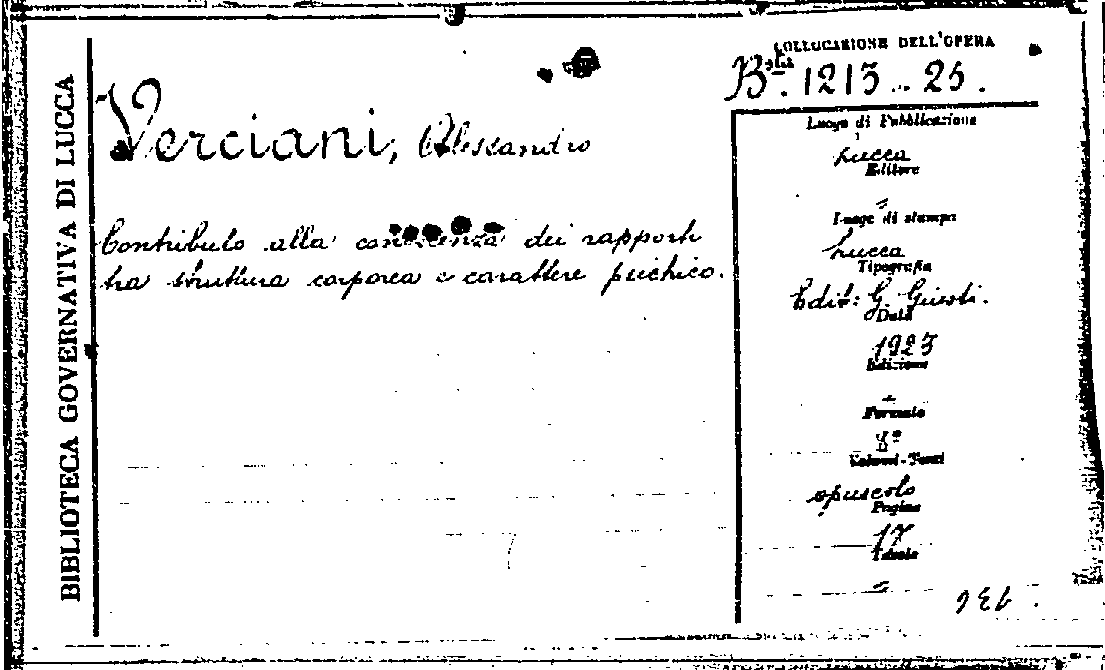 BIBLIOTECA GOVERNATIVA DI LUCCA
COLLOCAZIONE DELL'OPERA
Bta. 1213..25.
Verciani, Alessandro
Contributo alla conoscenza dei rapporti
tra struttura corporea e carattere psichico.
Luogo di Pubblicazione
Lucca
Editore
Luogo di stampa
Lucca
Tipografia
Edit: G. Giusti.
Data
1923
Edizione
Formato
8°
Volumi-Tomi
opuscolo
Pagine
17
Tavole